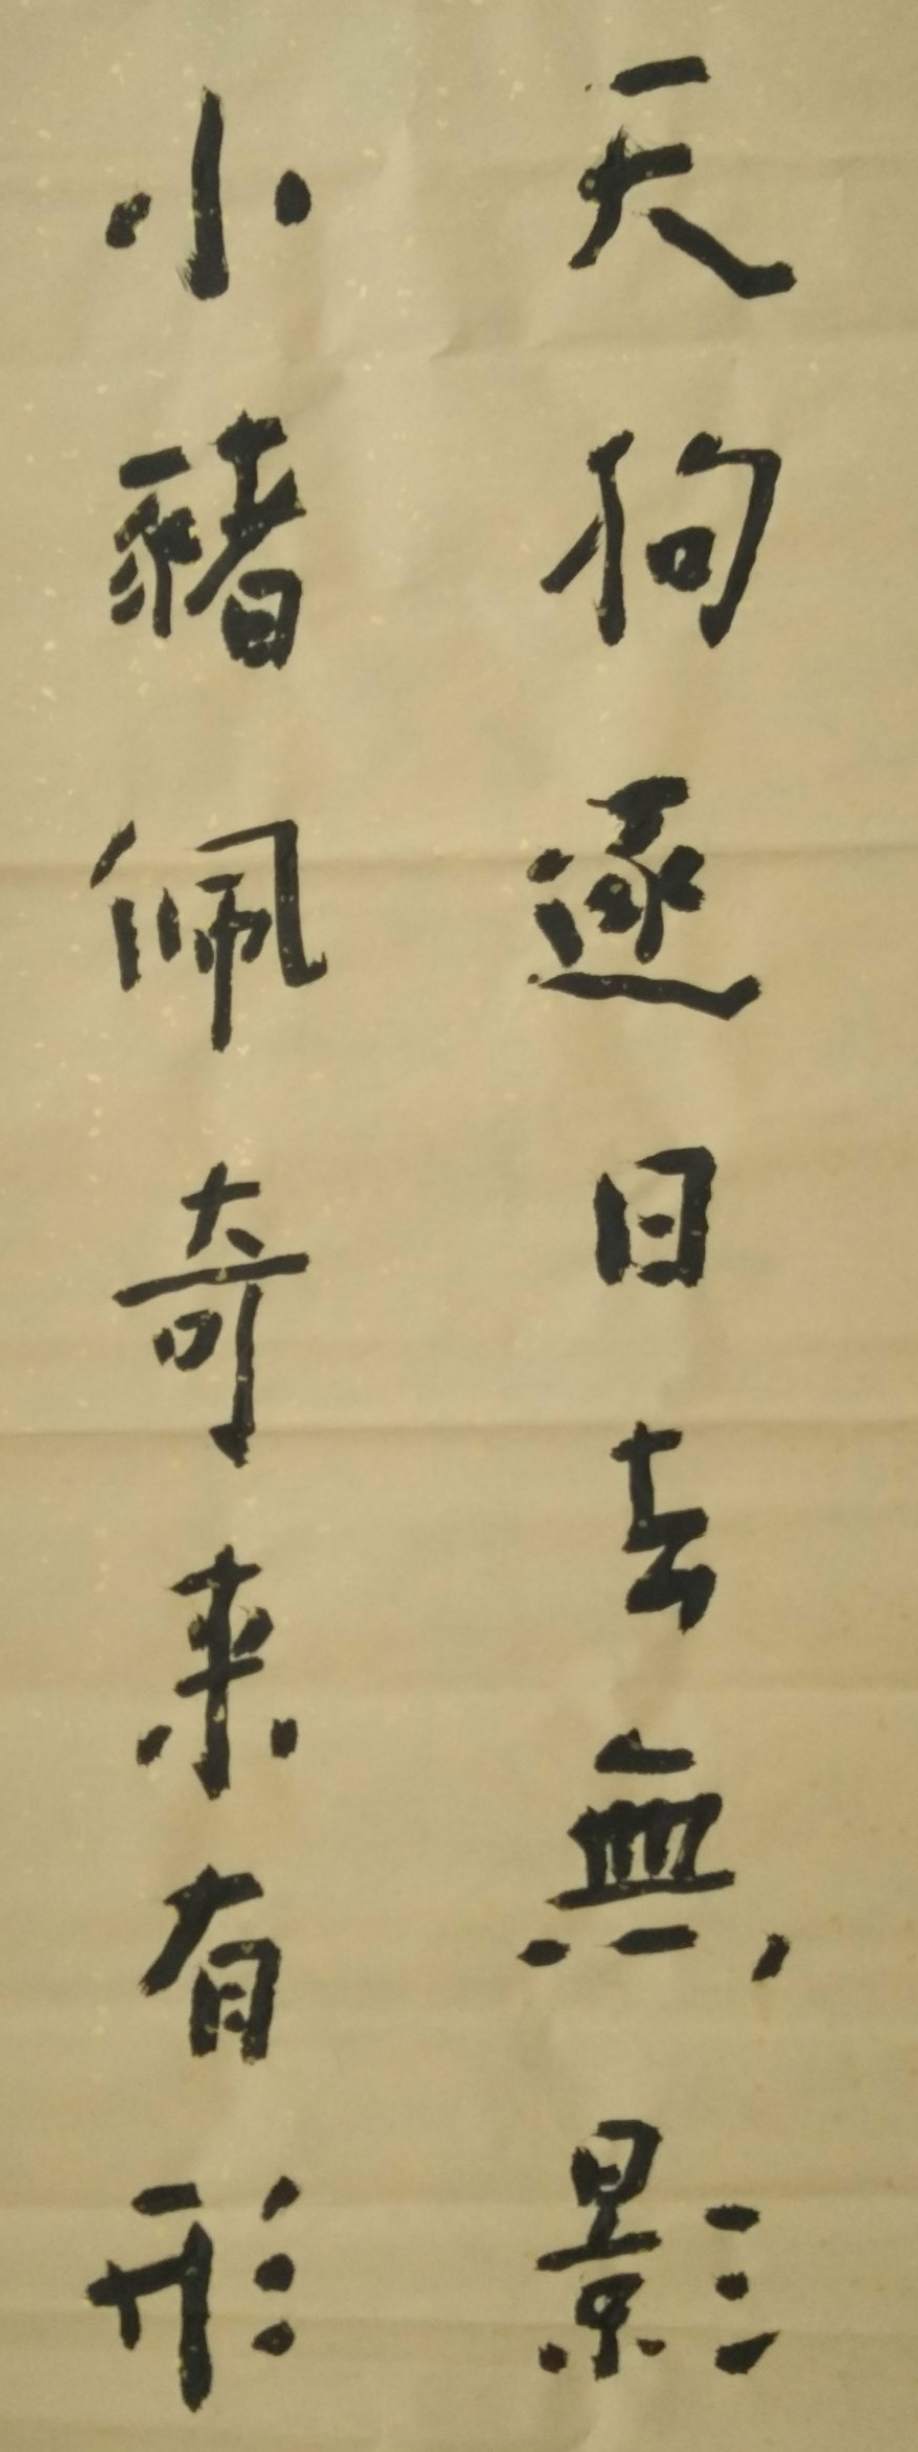 天狗逐日去無影
小豬佩奇来有形